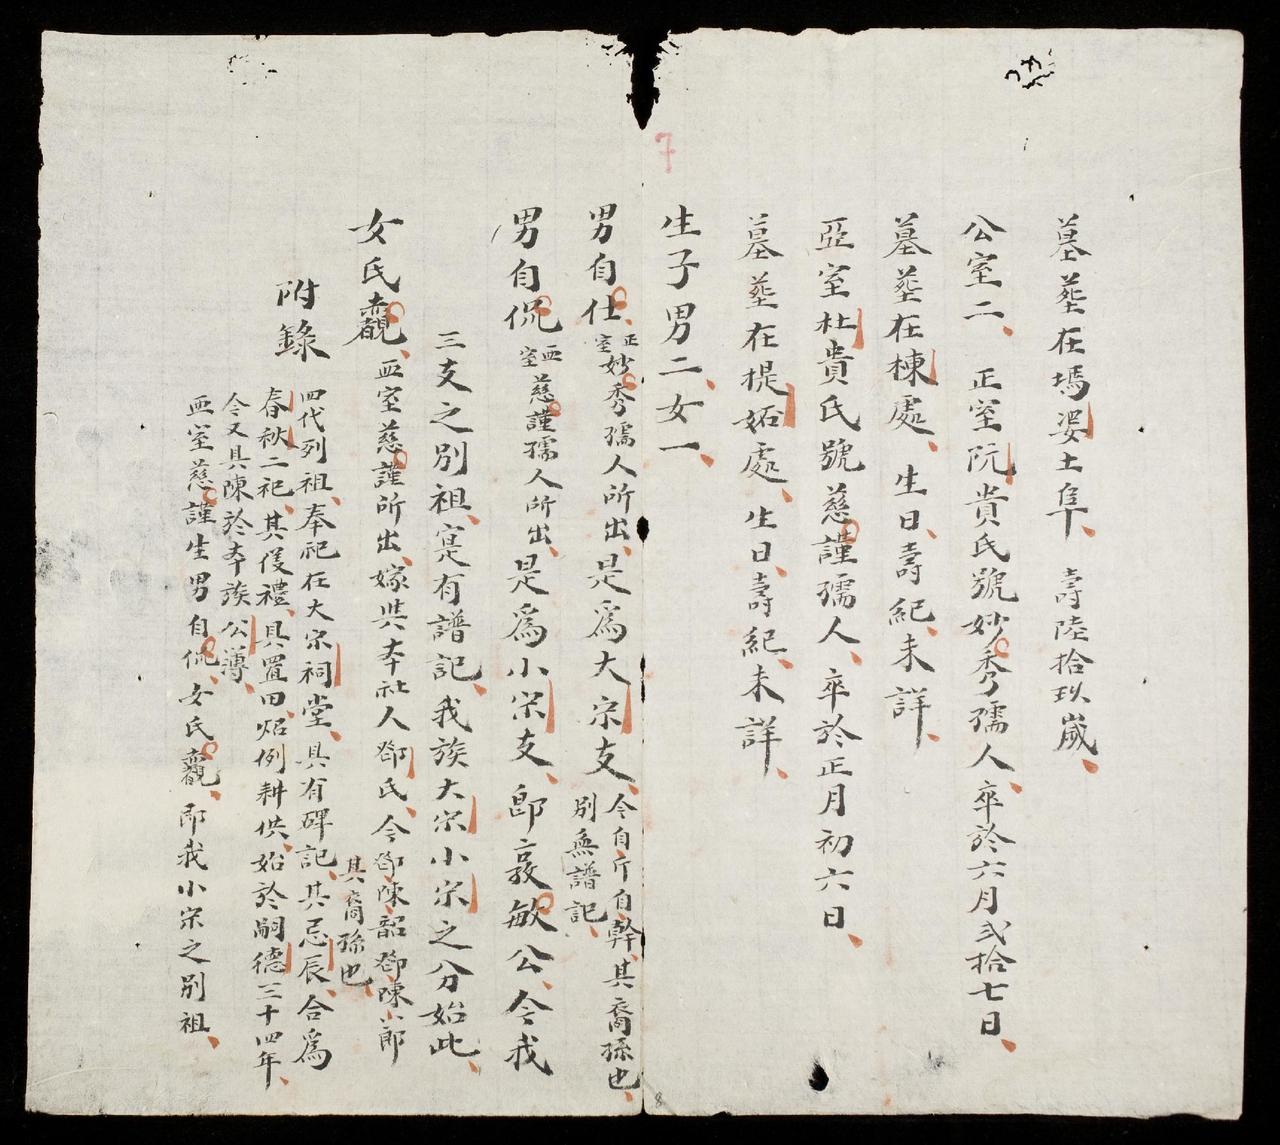 墓塟在塢婆土阜 壽陸拾玖歲
公室二 正室阮貴氏號妙秀孺人卒於六月弍拾七日
墓塟在棟處 生日壽紀未詳
亞室杜貴氏號慈謹孺人 卒於正月初六日
墓塟在提妬處 生日壽紀未詳
生子男二女一
男自仕 正室妙秀孺人所出是爲大宗支 今自斤自幹其裔孫也別無譜記
男自侃 亞室慈謹孺人所出是爲小宗支 即敦敏公今我
三支之別祖寔有譜記我族大宗小宗之分始此
女氏覿 亞室慈謹所出嫁與本社人鄧氏今鄧陳韶鄧陳郎其裔孫也
附錄
四代列祖奉祀在大宗祠堂具有碑記其忌辰合爲
春秋二祀其儀禮具置田炤例耕供始於嗣德三十四年
今又具陳於本族公薄
亞室慈謹生男自侃女氏覿即我小宗之別祖
7
8